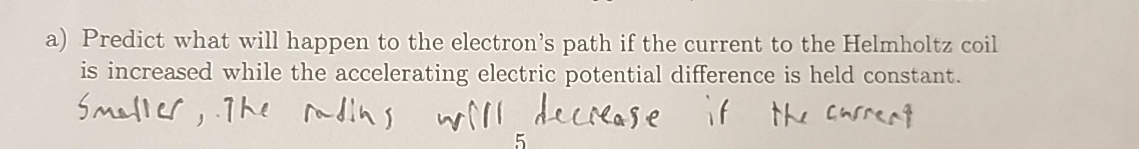 a) Predict what will happen to the electron's path if the current to the Helmholtz coil
is increased while the accelerating electric potential difference is held constant.
Smaller, The radius will decrease if the current
5